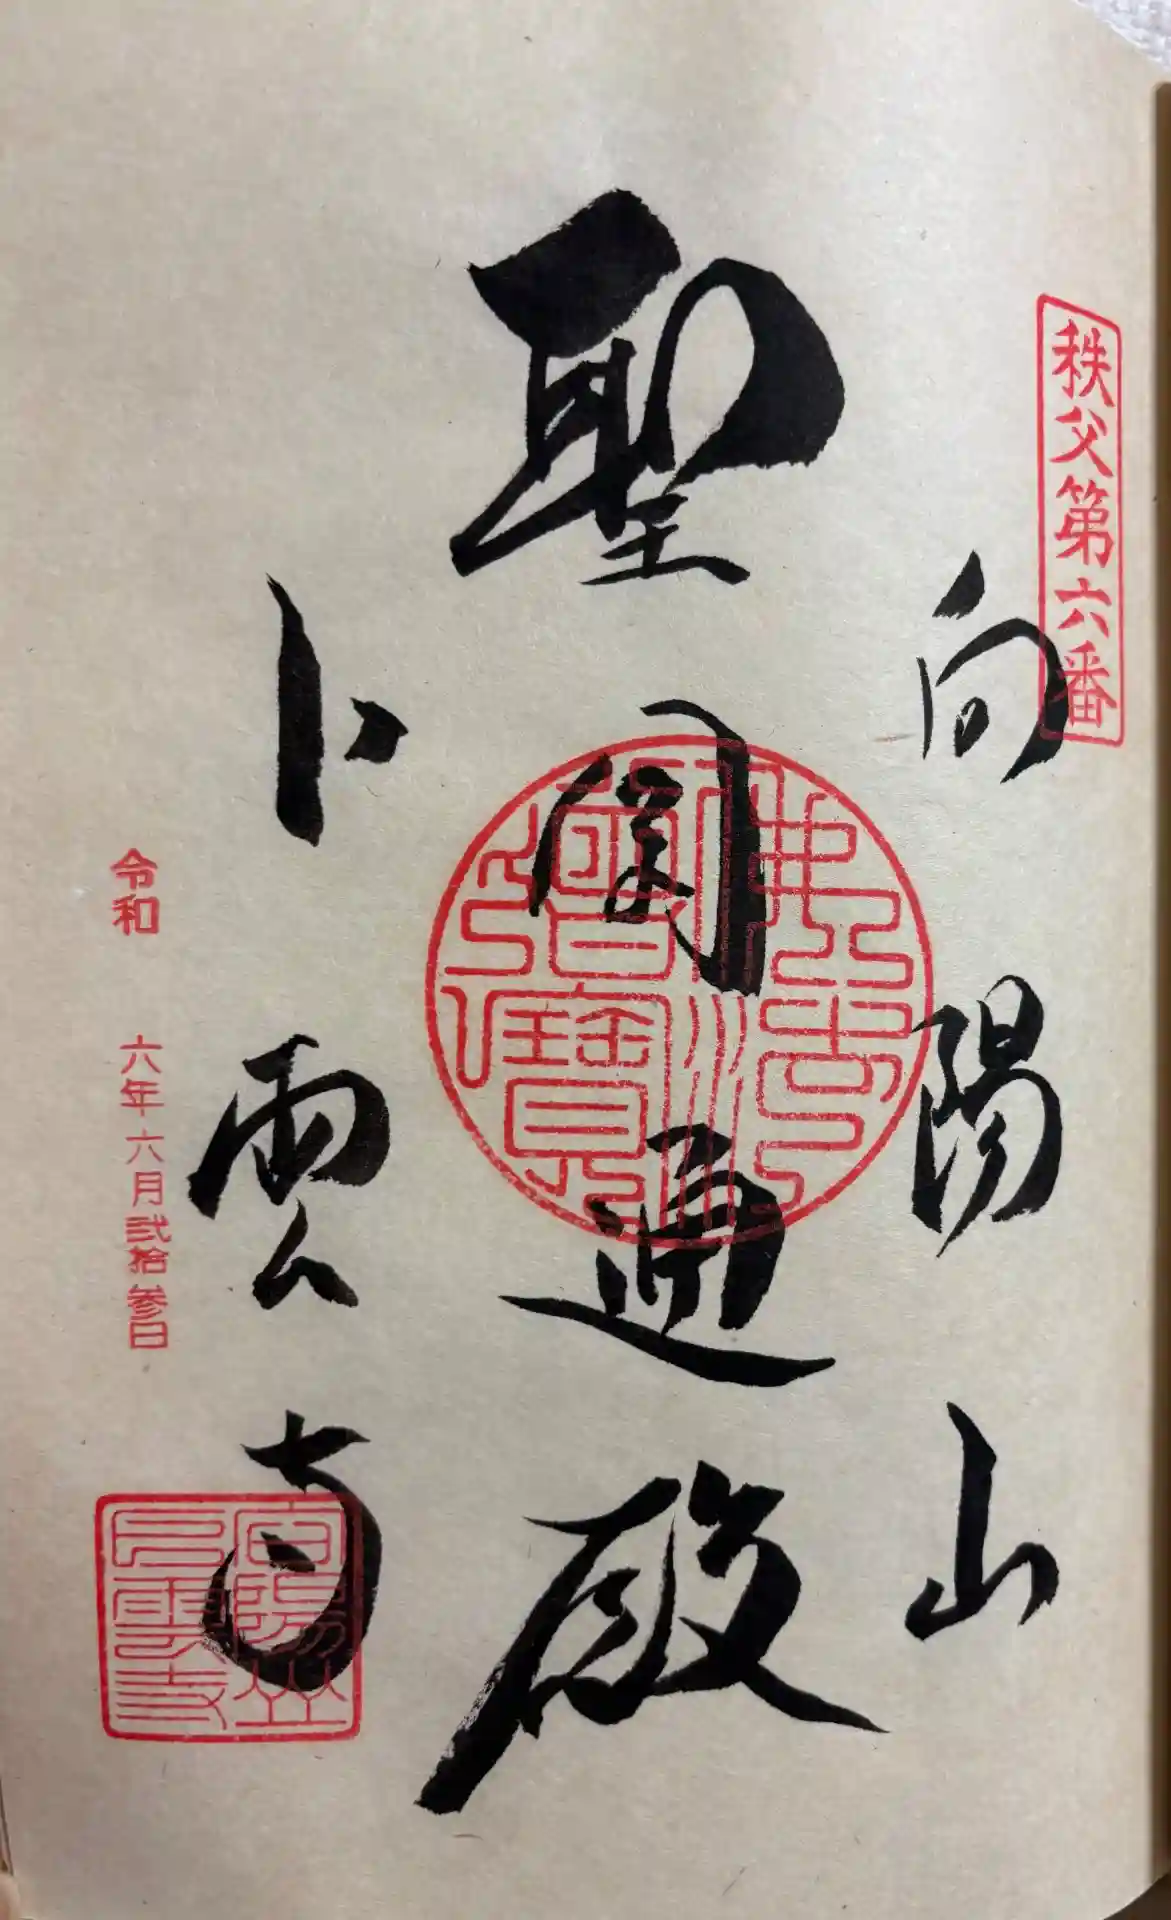 秩父第六番
向陽山
聖閣通殿
卜雲寺
令和 六年六月弐拾参日
佛法僧寶
向陽山卜雲寺